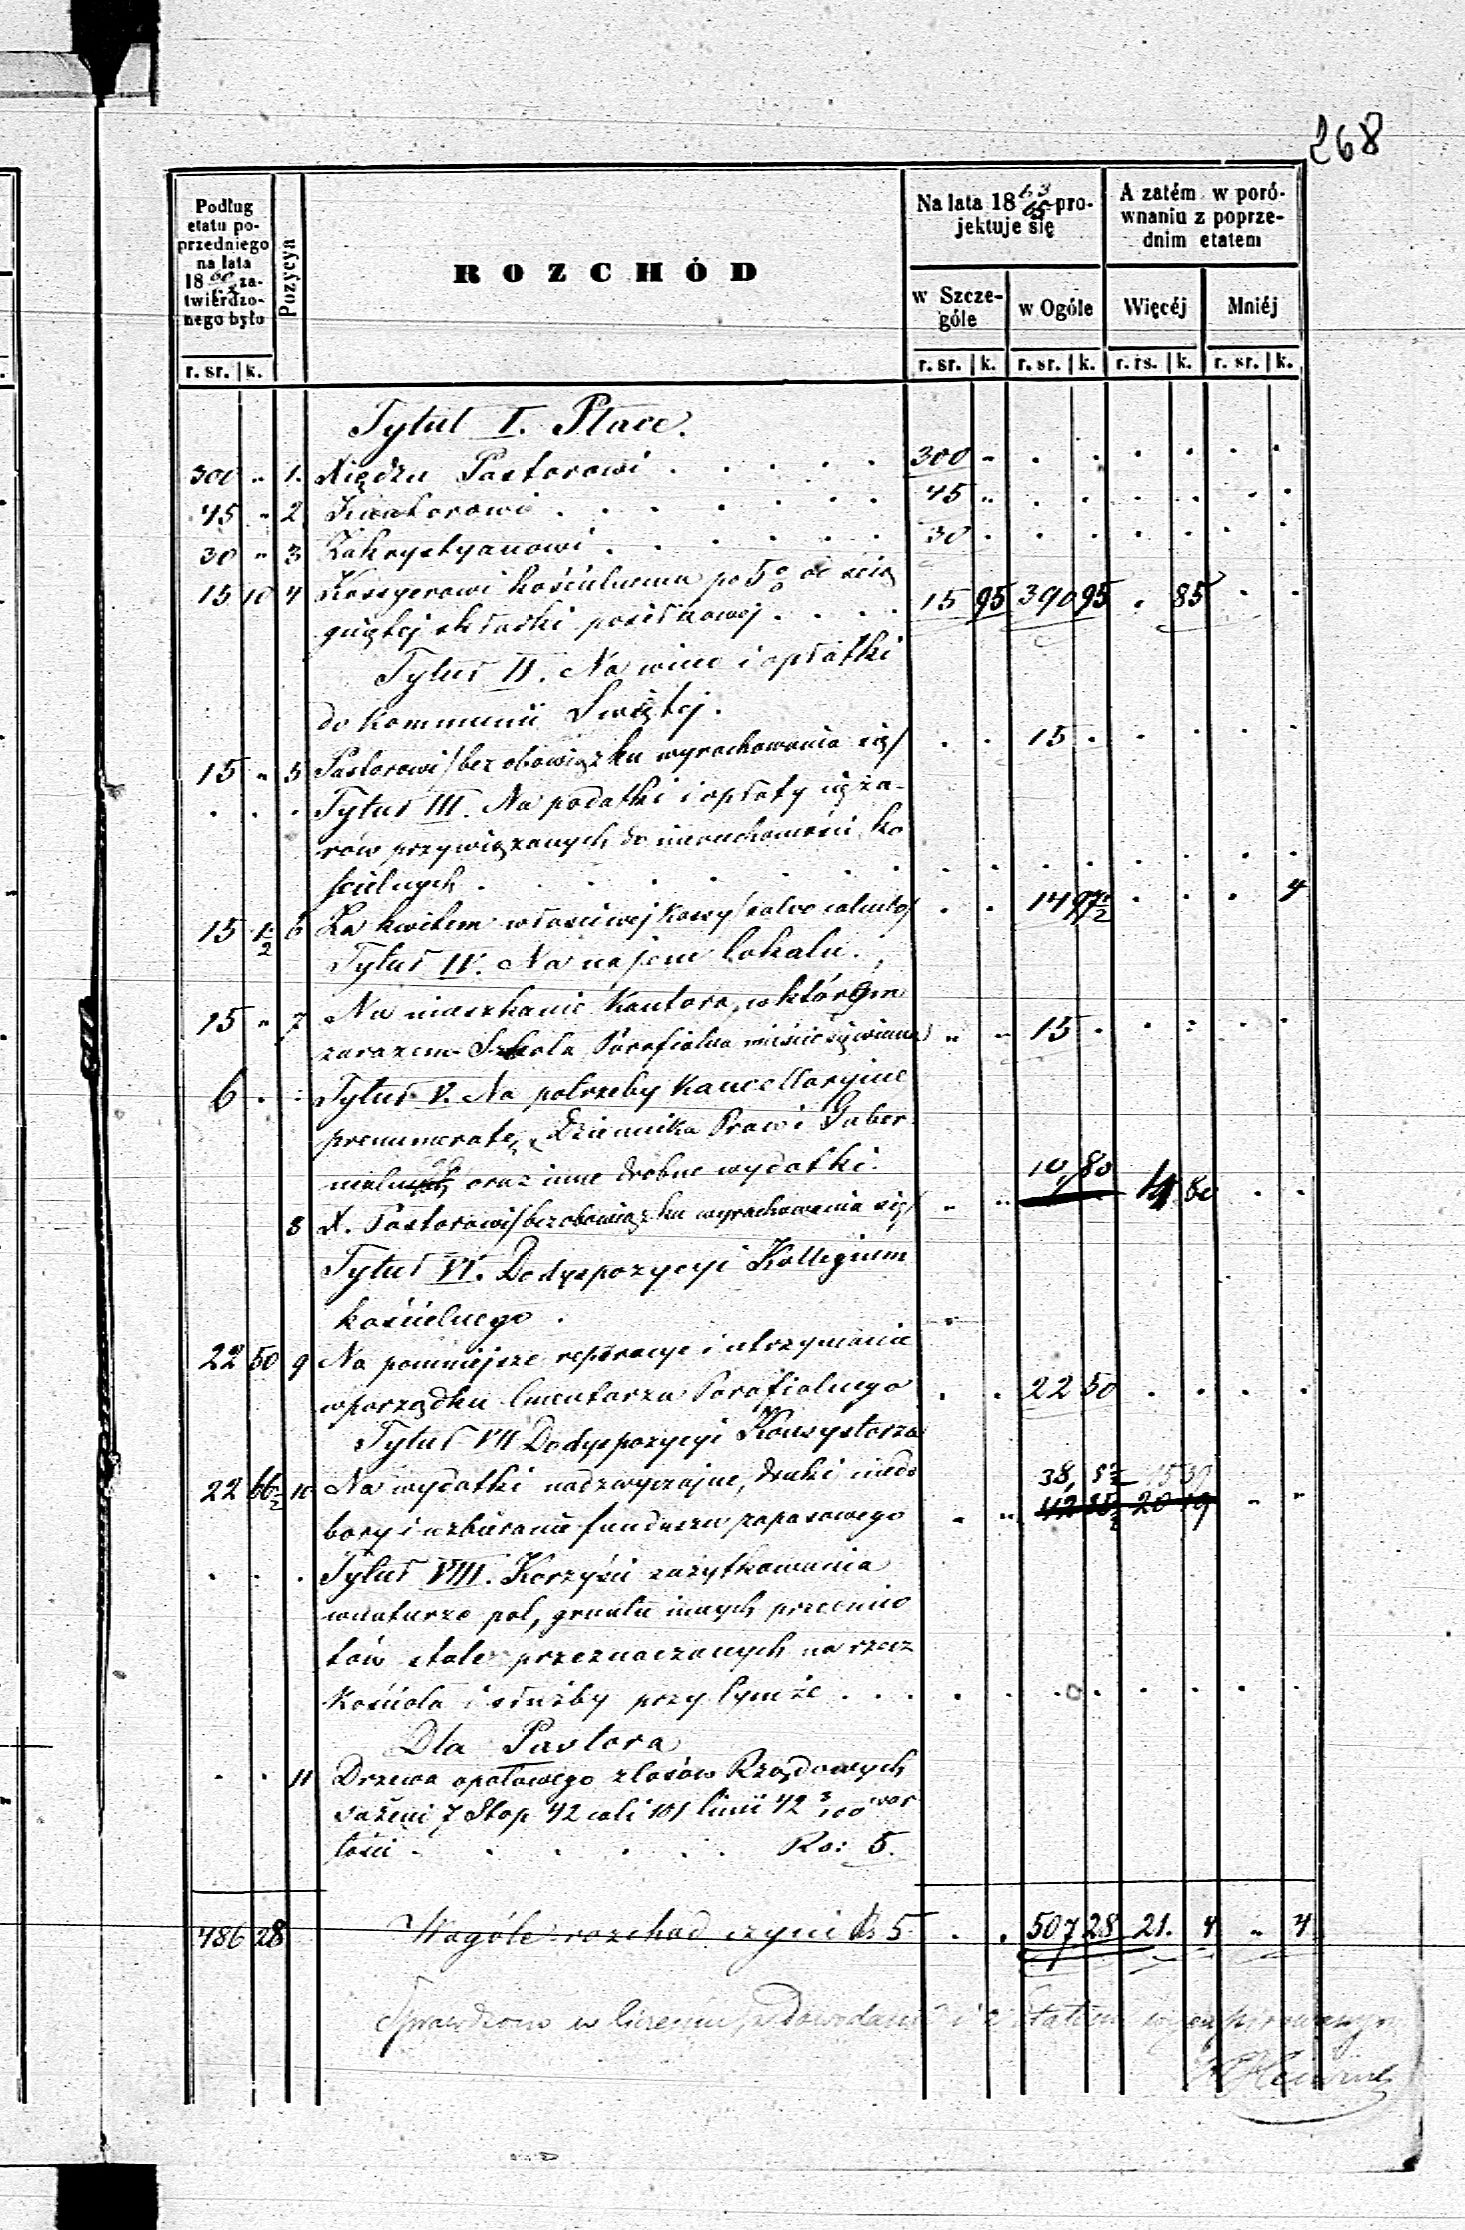 268
Podług etatu poprzedniego na lata 18 60/62 zatwierdzonego było
Pozycya
ROZCHÓD
Na lata 18 63/65 projektuje się
A zatém w porównaniu z poprzednim etatem
w Szczególe
w Ogóle
Więcéj
Mniéj
r. sr. | k.
r. sr. | k. r. sr. | k. r. rs. | k. r. sr. | k.
Tytuł I. Płace.
300 " 1. Xiędzu Pastorowi . . . . . 300 "
45 " 2 Kantorowi . . . . . . 45 "
30 " 3 Zakrystyanowi . . . . . . 30 .
15 10 4 Kassyerowi kościelnemu po 5% od ścią
gniętej składki posiłkowej . . . . 15 95 390 95 . 85 . .
Tytuł II. Na wino i opłatki
do Kommunii Swiętej.
15 " 5 Pastorowi /bez obowiązku wyrachowania się/ . . 15 .
. . . Tytuł III. Na podatki i opłaty cięża-
rów przywiązanych do nieruchomości ko
ścielnych . . . . . .
15 1/2 6 Za kwitem właściwej Kassy /salvo calculo/ . . 14 97 1/2 . . . 4
Tytuł IV. Na najem lokalu.
15 " 7 Na mieszkanie Kantora, w którém
zarazem Szkoła Parafialna mieścić się winna " " 15 .
6 . : Tytuł V. Na potrzeby Kancellaryjne
prenumeratę Dziennika Praw i Guber
nialnego oraz inne drobne wydatki.
10 80
8 X. Pastorowi /bez obowiązku wyrachowania się/ " " 4 80 . .
Tytuł VI. Do dyspozycyi Kollegium
kościelnego .
22 50 9 Na pomniejsze reperacye i utrzymanie
w porządku Cmentarza Parafialnego . . 22 50 . . . .
Tytuł VII Do dyspozycyi Konsystorza
22 66 1/2 10 Na wydatki nadzwyczajne, druki niedo 38, 5 1/2 15 39
bory i uzbieranie funduszu zapasowego " " 20 19 " "
. . . Tytuł VIII. Korzyści z użytkowania
w naturze pól, gruntu innych przedmio
tów stale przeznaczonych na rzecz
Kościoła i służby przy tymże . . .
Dla Pastora
. . 11 Drzewa opałowego z lasów Rządowych
sążeni 7 Stop 42 cali 101 linii 42 3/100 war
tości . . . . . . Rs: 5.
486 28 Wogóle rozchód czyni Rs 5 . . 507 28 21. 4 " 4
Sprawdzono w liczeniu, z Dowodami i z Etatem